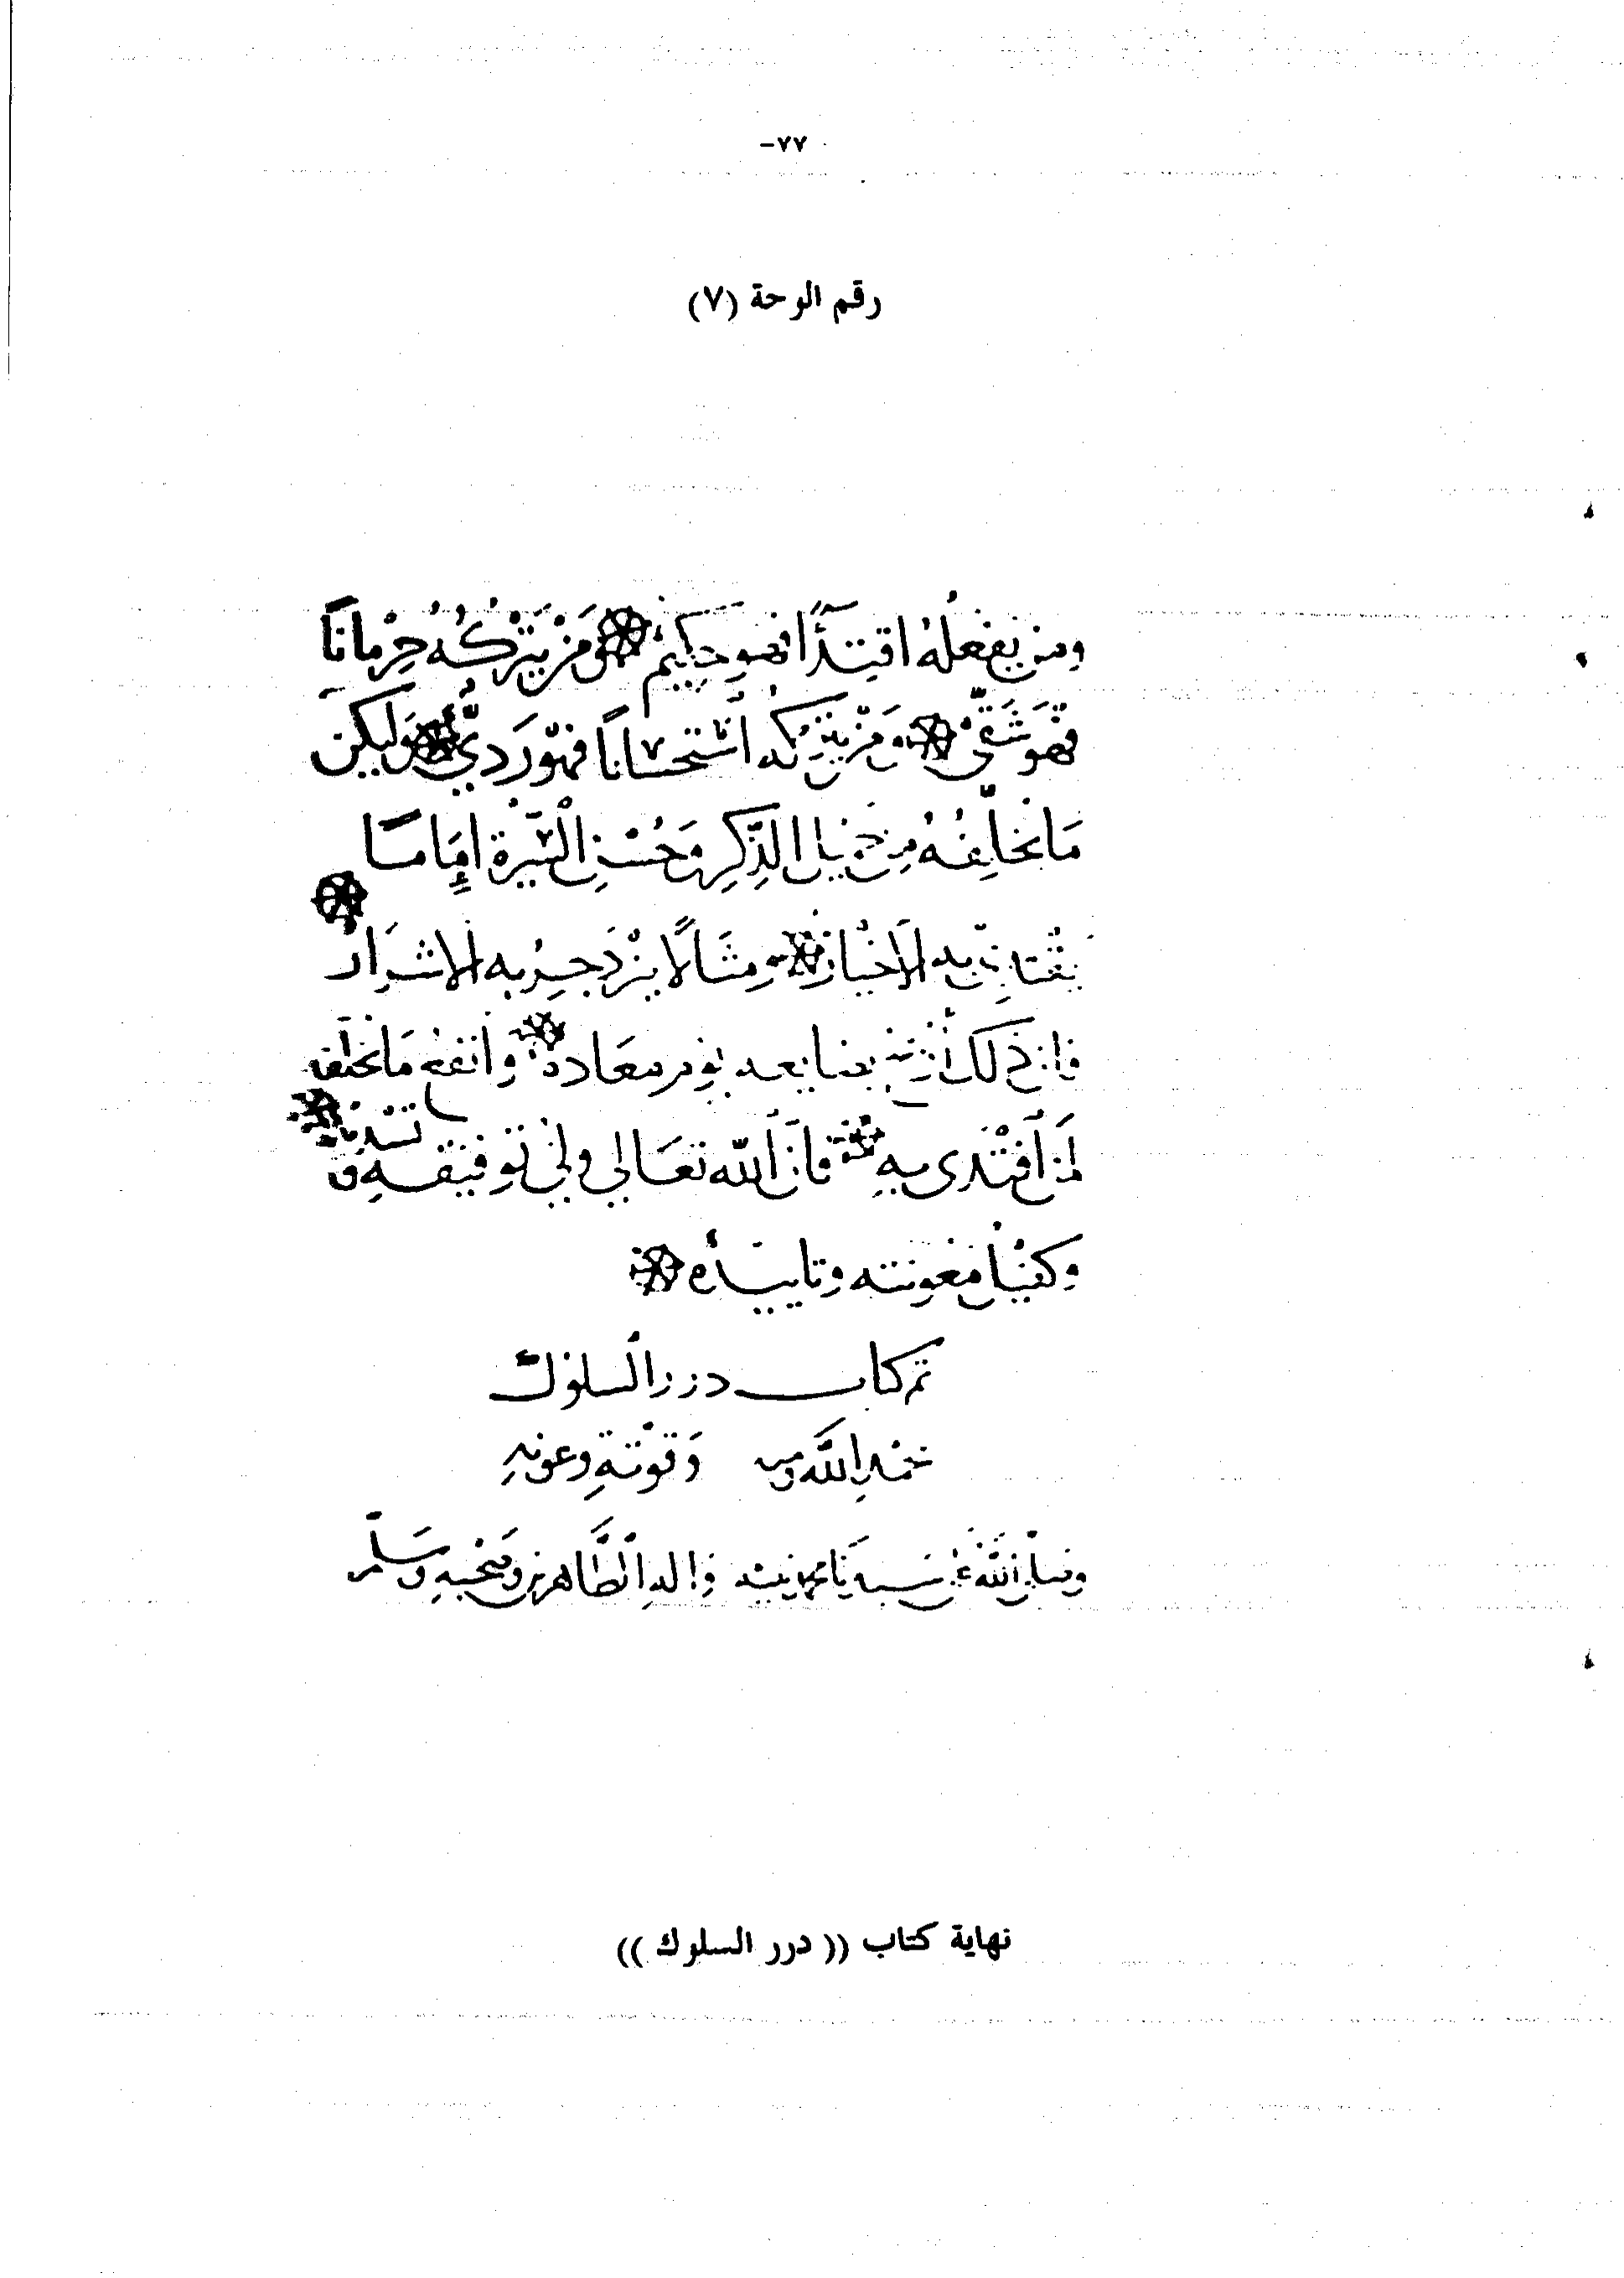 ٧٧-
رقم الوحة (٧)
ومن يفعله اقتدًا فهو حكيم ومن يتركه حرمانًا
فهو شقي ومن يتركه استحسانًا فهو ردي وليكن
ما يخلفه من جميل الذكر وحسن السيرة إمامًا
يقتدي به الأخيار ومثالًا يزدجر به الاشرار
فان ذلك بضايعه يوم معاده وانفع ما يخلفه
لمن اقتدى به فان الله تعالى ولي توفيقه و تسديده
وكفيل معونته وتاييده
تم كتاب درر السلوك
بحمد الله ومنه وقوته وعونه
وصلى الله على سيدنا محمد نبيه واله الطاهرين وصحبه وسلم
نهاية كتاب (( درر السلوك ))